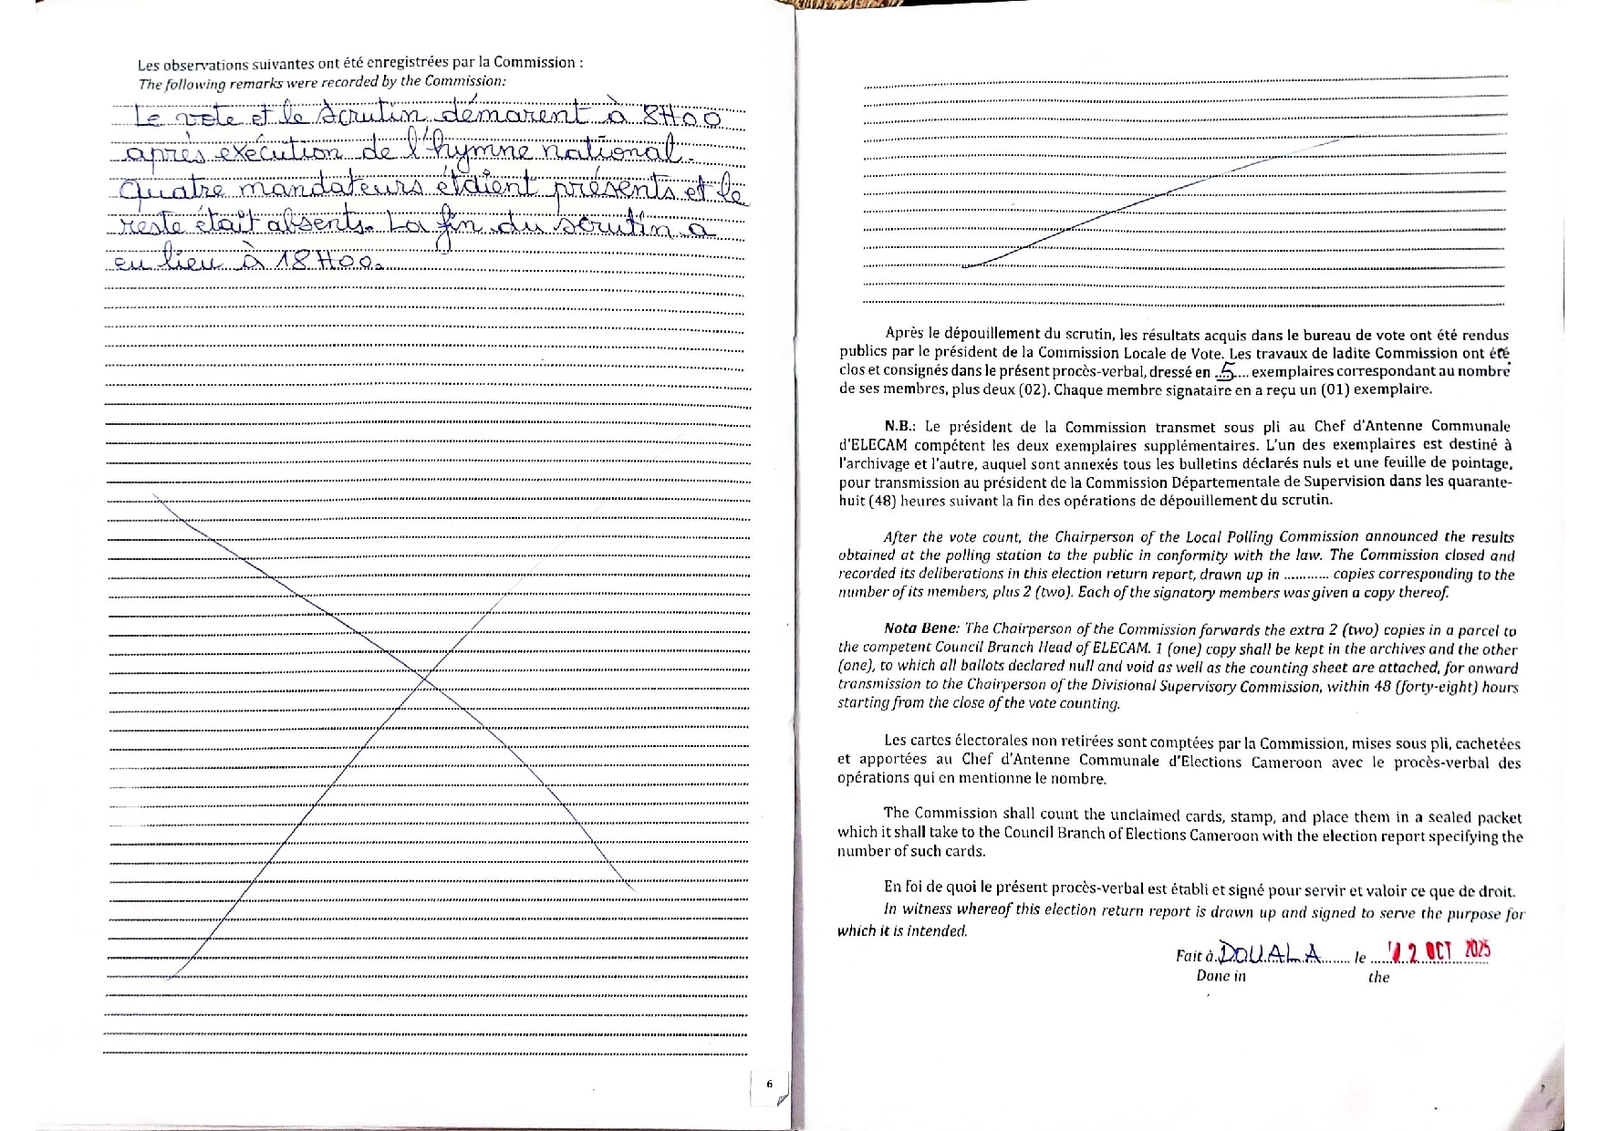 Les observations suivantes ont été enregistrées par la Commission :
The following remarks were recorded by the Commission:
Le vote et le scrutin démarent à 8H00
après exécution de l'hymne national.
Quatre mandateurs étaient présents et le
reste était absents. La fin du scrutin a
eu lieu à 18H00.
6
Après le dépouillement du scrutin, les résultats acquis dans le bureau de vote ont été rendus
publics par le président de la Commission Locale de Vote. Les travaux de ladite Commission ont été
clos et consignés dans le présent procès-verbal, dressé en .5.... exemplaires correspondant au nombre
de ses membres, plus deux (02). Chaque membre signataire en a reçu un (01) exemplaire.
N.B.: Le président de la Commission transmet sous pli au Chef d'Antenne Communale
d'ELECAM compétent les deux exemplaires supplémentaires. L'un des exemplaires est destiné à
l'archivage et l'autre, auquel sont annexés tous les bulletins déclarés nuls et une feuille de pointage,
pour transmission au président de la Commission Départementale de Supervision dans les quarante-
huit (48) heures suivant la fin des opérations de dépouillement du scrutin.
After the vote count, the Chairperson of the Local Polling Commission announced the results
obtained at the polling station to the public in conformity with the law. The Commission closed and
recorded its deliberations in this election return report, drawn up in ............ copies corresponding to the
number of its members, plus 2 (two). Each of the signatory members was given a copy thereof.
Nota Bene: The Chairperson of the Commission forwards the extra 2 (two) copies in a parcel to
the competent Council Branch Head of ELECAM. 1 (one) copy shall be kept in the archives and the other
(one), to which all ballots declared null and void as well as the counting sheet are attached, for onward
transmission to the Chairperson of the Divisional Supervisory Commission, within 48 (forty-eight) hours
starting from the close of the vote counting.
Les cartes électorales non retirées sont comptées par la Commission, mises sous pli, cachetées
et apportées au Chef d'Antenne Communale d'Elections Cameroon avec le procès-verbal des
opérations qui en mentionne le nombre.
The Commission shall count the unclaimed cards, stamp, and place them in a sealed packet
which it shall take to the Council Branch of Elections Cameroon with the election report specifying the
number of such cards.
En foi de quoi le présent procès-verbal est établi et signé pour servir et valoir ce que de droit.
In witness whereof this election return report is drawn up and signed to serve the purpose for
which it is intended.
Fait à DOUALA ...... le .... 12 OCT 2025
Done in the